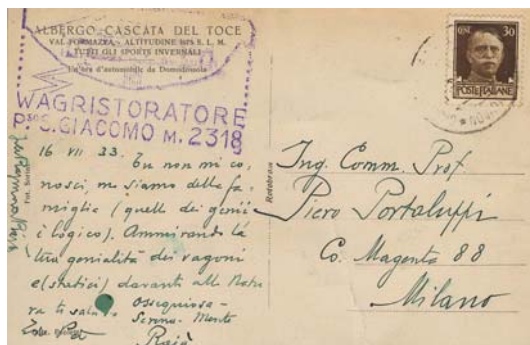 ALBERGO CASCATA DEL TOCE
VAL FORMAZZA - ALTITUDINE 1675 S. L. M.
TUTTI GLI SPORTS INVERNALI
Un'ora d'automobile da Domodossola
WAGRISTORATORE
P.sso S. GIACOMO M. 2318
16 VII 33.
Tu non mi co,
nosci, ma siamo della fa-
miglia (quella dei genii
è logico). Ammirando la
tua genialità dei vagoni
e(statici) davanti alla Natu
ra ti saluto ossequiosa-
Serena-Mente
Rotobrom
CENT. 30
POSTE ITALIANE
Ing. Comm. Prof
Piero Portaluppi
Co. Magenta 88
Milano